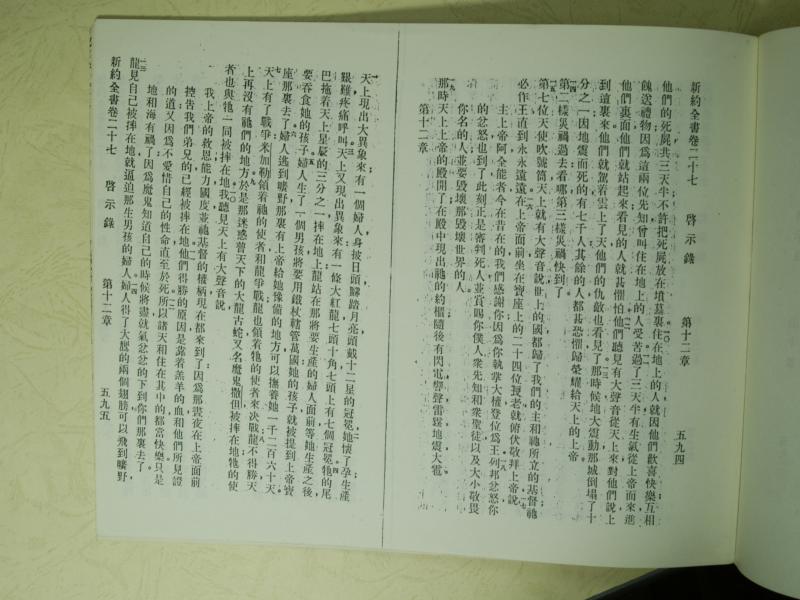 新約全書卷二十七 啓示錄 第十二章 五九四
他們的死屍共三天半不許把死屍放在墳墓裏住在地上的人就因他們歡喜快樂互相
餽送禮物因為這兩位先知曾叫住在地上的人受苦過了三天半有生氣從上帝而來進
他們裏面他們就站起來看見的人就甚懼怕他們聽見有大聲音從天上來對他們說上
到這裏來他們就駕着雲上了天他們的仇敵也看見了那時候地大震動那城倒塌了十
分之一因地震而死的有七千人其餘的人都甚恐懼歸榮耀給天上的上帝
第二樣災禍過去看哪第三樣災禍快到了
第七位天使吹號筒天上就有大聲音說世上的國都歸了我們的主和祂所立的基督祂
必作王直到永永遠遠在上帝面前坐在寶座上的二十四位長老就俯伏敬拜上帝說
主上帝阿全能者今在昔在的我們感謝你因為你就掌大權登位為王列邦忿怒你
的忿怒也到了此刻正是審判死人並賞賜你僕人衆先知和衆聖徒以及大小敬畏
你名的人並要毀壞那毀壞世界的人
那時天上上帝的殿開了在殿中現出祂的約櫃隨後有閃電響聲雷轟地震大雹
第十二章
天上現出大異象來有一個婦人身披日頭腳踏月亮頭戴十二星的冠冕她懷了孕生產
艱難疼痛呼叫天上又現出異象來有一條大紅龍七頭十角七頭上有七個冠冕牠的尾
巴拖着天上星辰的三分之一摔在地上龍站在那將要生產的婦人面前等她生產之後
要吞食她的孩子婦人生了一個男孩將要用鐵杖轄管萬國她的孩子就被提到上帝寶
座那裏去了婦人逃到曠野那裏有上帝給她豫備的地方可以撫養她一千二百六十天
天上有了戰爭米加勒領着祂的使者和龍爭戰龍也領着牠的使者來決戰龍不得勝天
上再沒有牠們的地方於是那迷惑普天下的大龍古蛇又名魔鬼撒但被摔在地牠的使
者也與牠一同被摔在地我聽見天上有大聲音說
我上帝的救恩能力國度並祂基督的權柄現在都來到了因為那晝夜在上帝面前
控告我們弟兄的已經被摔在地他們得勝的原因是靠着羔羊的血和他們所見證
的道又因為不愛惜自己的性命直至於死所以諸天和住在其中的都當快樂只是
地和海有禍了因為魔鬼知道自己的時候將盡就氣忿忿的下到你們那裏去了
龍見自己被摔在地就逼迫那生男孩的婦人婦人得了大鷹的兩個翅膀可以飛到曠野
新約全書卷二十七 啓示錄 第十二章 五九五